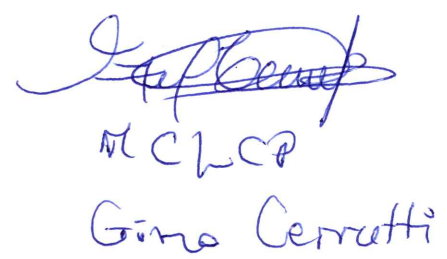 MCLCP
Gino Cerrutti